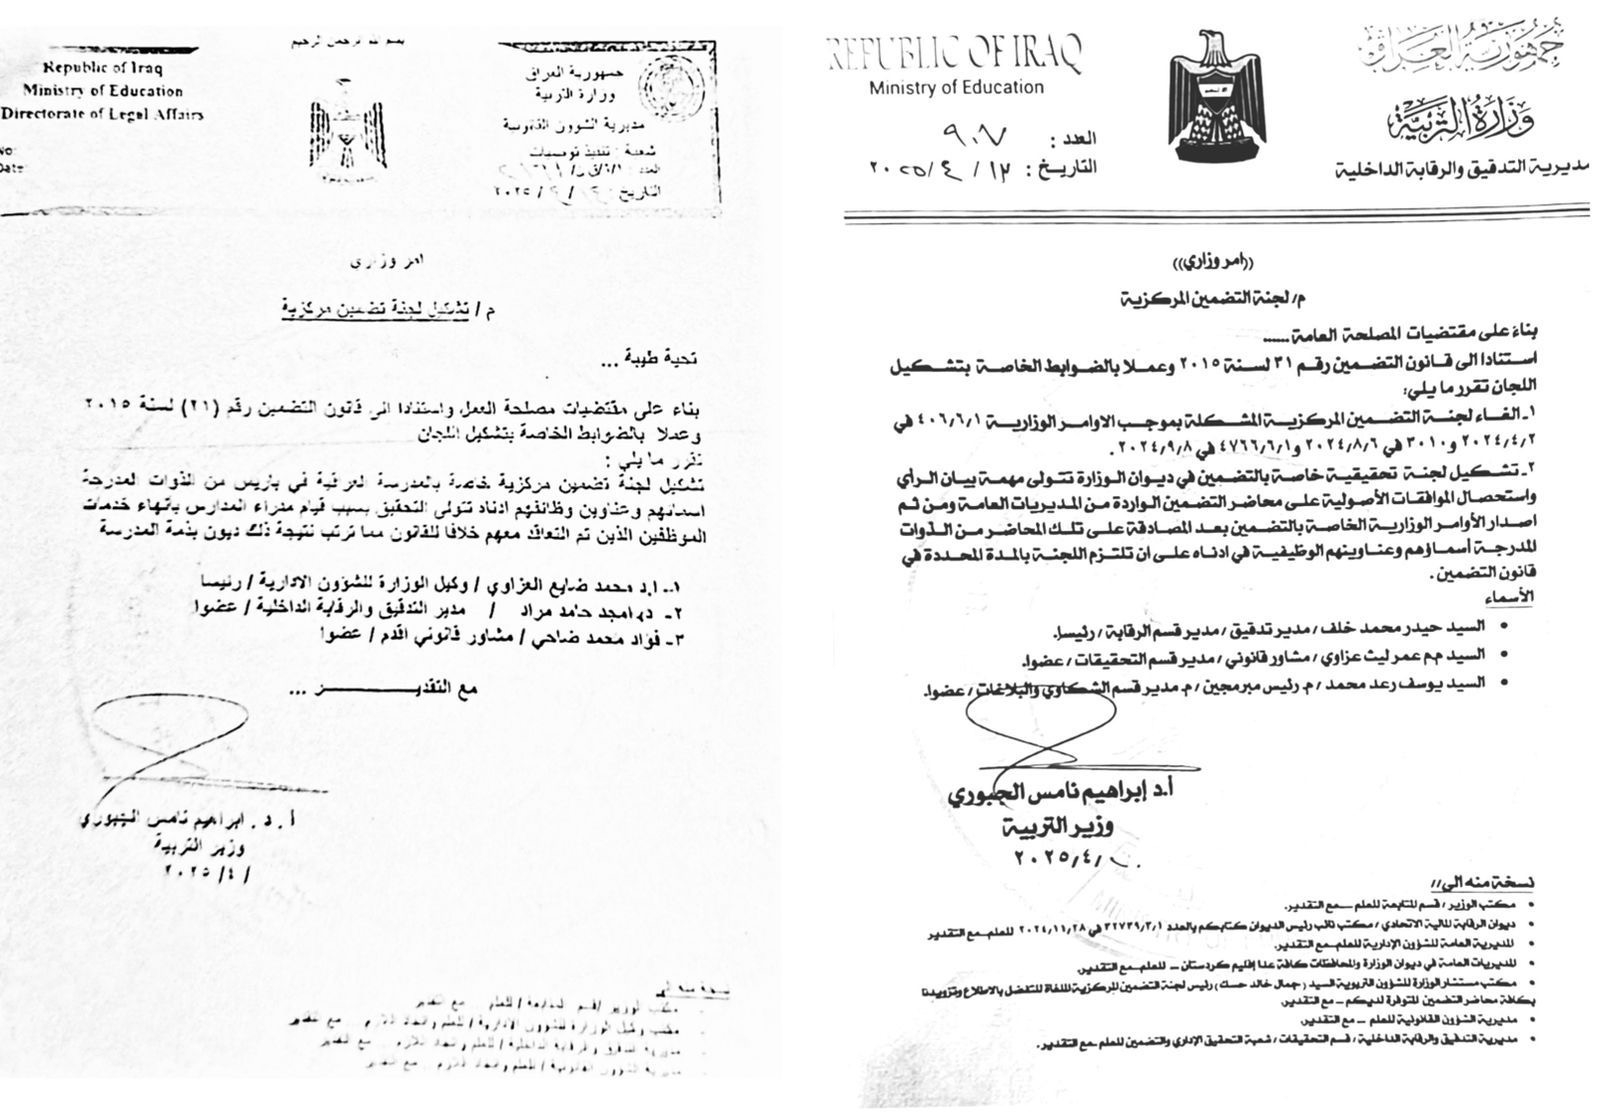 بسم الله الرحمن الرحيم
Republic of Iraq
Ministry of Education
Directorate of Legal Affairs
No:
Date:
جمهورية العراق
وزارة التربية
مديرية الشؤون القانونية
شعبة : تنفيذ توصيات
العدد :
التاريخ : ٢٠٢٥
امر وزاري
م / تشكيل لجنة تضمين مركزية
تحية طيبة ...
بناء على مقتضيات مصلحة العمل واستنادا الى قانون التضمين رقم (٣١) لسنة ٢٠١٥
وعملا بالضوابط الخاصة بتشكيل اللجان
تقرر ما يلي :
تشكيل لجنة تضمين مركزية خاصة بالمدرسة العراقية في باريس من الذوات المدرجة
اسمائهم وعناوين وظائفهم ادناه تتولى التحقيق بسبب قيام مدراء المدارس بأنهاء خدمات
الموظفين الذين تم التعاقد معهم خلافا للقانون مما ترتب نتيجة ذلك ديون بذمة المدرسة
١- ا.د محمد ضايع العزاوي / وكيل الوزارة للشؤون الادارية / رئيسا
٢- د. امجد حامد مراد / مدير التدقيق والرقابة الداخلية / عضوا
٣- فؤاد محمد ضاحي / مشاور قانوني اقدم / عضوا
مع التقديــــــــر ...
أ . د . ابراهيم نامس الجبوري
وزير التربية
/ ٤ / ٢٠٢٥
نسخة منه الى
مكتب الوزير /قسم المتابعة / للعلم .. مع التقدير
مكتب وكيل الوزارة للشؤون الادارية / للعلم واتخاذ اللازم .. مع التقدير
مديرية التدقيق والرقابة الداخلية / للعلم واتخاذ اللازم .. مع التقدير
مديرية الشؤون القانونية / للعلم واتخاذ اللازم .. مع التقدير
REPUBLIC OF IRAQ
Ministry of Education
العدد : ٩٠٧
التاريخ : ١٣ / ٤ / ٢٠٢٥
جمهورية العراق
وزارة التربية
مديرية التدقيق والرقابة الداخلية
((امر وزاري))
م/ لجنة التضمين المركزية
بناءً على مقتضيات المصلحة العامة......
استنادا الى قانون التضمين رقم ٣١ لسنة ٢٠١٥ وعملا بالضوابط الخاصة بتشكيل
اللجان تقرر ما يلي:
١- الغاء لجنة التضمين المركزية المشكلة بموجب الاوامر الوزارية ٤٠٦/٦/١ في
٢٠٢٤/٤/٢ و٣٠١٠ في ٢٠٢٤/٨/٦ و٤٧٦٦/٦/١ في ٢٠٢٤/٩/٨ .
٢- تشكيل لجنة تحقيقية خاصة بالتضمين في ديوان الوزارة تتولى مهمة بيان الرأي
واستحصال الموافقات الأصولية على محاضر التضمين الواردة من المديريات العامة ومن ثم
اصدار الأوامر الوزارية الخاصة بالتضمين بعد المصادقة على تلك المحاضر من الذوات
المدرجة أسماؤهم وعناوينهم الوظيفية في ادناه على ان تلتزم اللجنة بالمدة المحددة في
قانون التضمين .
الأسماء
• السيد حيدر محمد خلف / مدير تدقيق / مدير قسم الرقابة / رئيسا.
• السيد م.م عمر ليث عزاوي / مشاور قانوني / مدير قسم التحقيقات / عضوا.
• السيد يوسف رعد محمد / م. رئيس مبرمجين / م. مدير قسم الشكاوي والبلاغات / عضوا.
أ.د إبراهيم نامس الجبوري
وزير التربية
٢٠٢٥/٤/
نسخة منه الى//
• مكتب الوزير / قسم المتابعة للعلم – مع التقدير.
• ديوان الرقابة المالية الاتحادي / مكتب نائب رئيس الديوان كتابكم بالعدد ٣٢٧٣٩/٣/١ في ٢٠٢٤/١١/٢٨ للعلم مع التقدير
• المديرية العامة للشؤون الإدارية للعلم – مع التقدير.
• المديريات العامة في ديوان الوزارة والمحافظات كافة عدا إقليم كردستان – للعلم – مع التقدير.
• مكتب مستشار الوزارة للشؤون التربوية السيد ( جمال خالد حسك ) رئيس لجنة التضمين المركزية الملغاة للتفضل بالاطلاع وتزويدنا
بكافة محاضر التضمين المتوفرة لديكم – مع التقدير.
• مديرية الشؤون القانونية للعلم – مع التقدير.
• مديرية التدقيق والرقابة الداخلية / قسم التحقيقات / شعبة التحقيق الإداري والتضمين للعلم – مع التقدير.